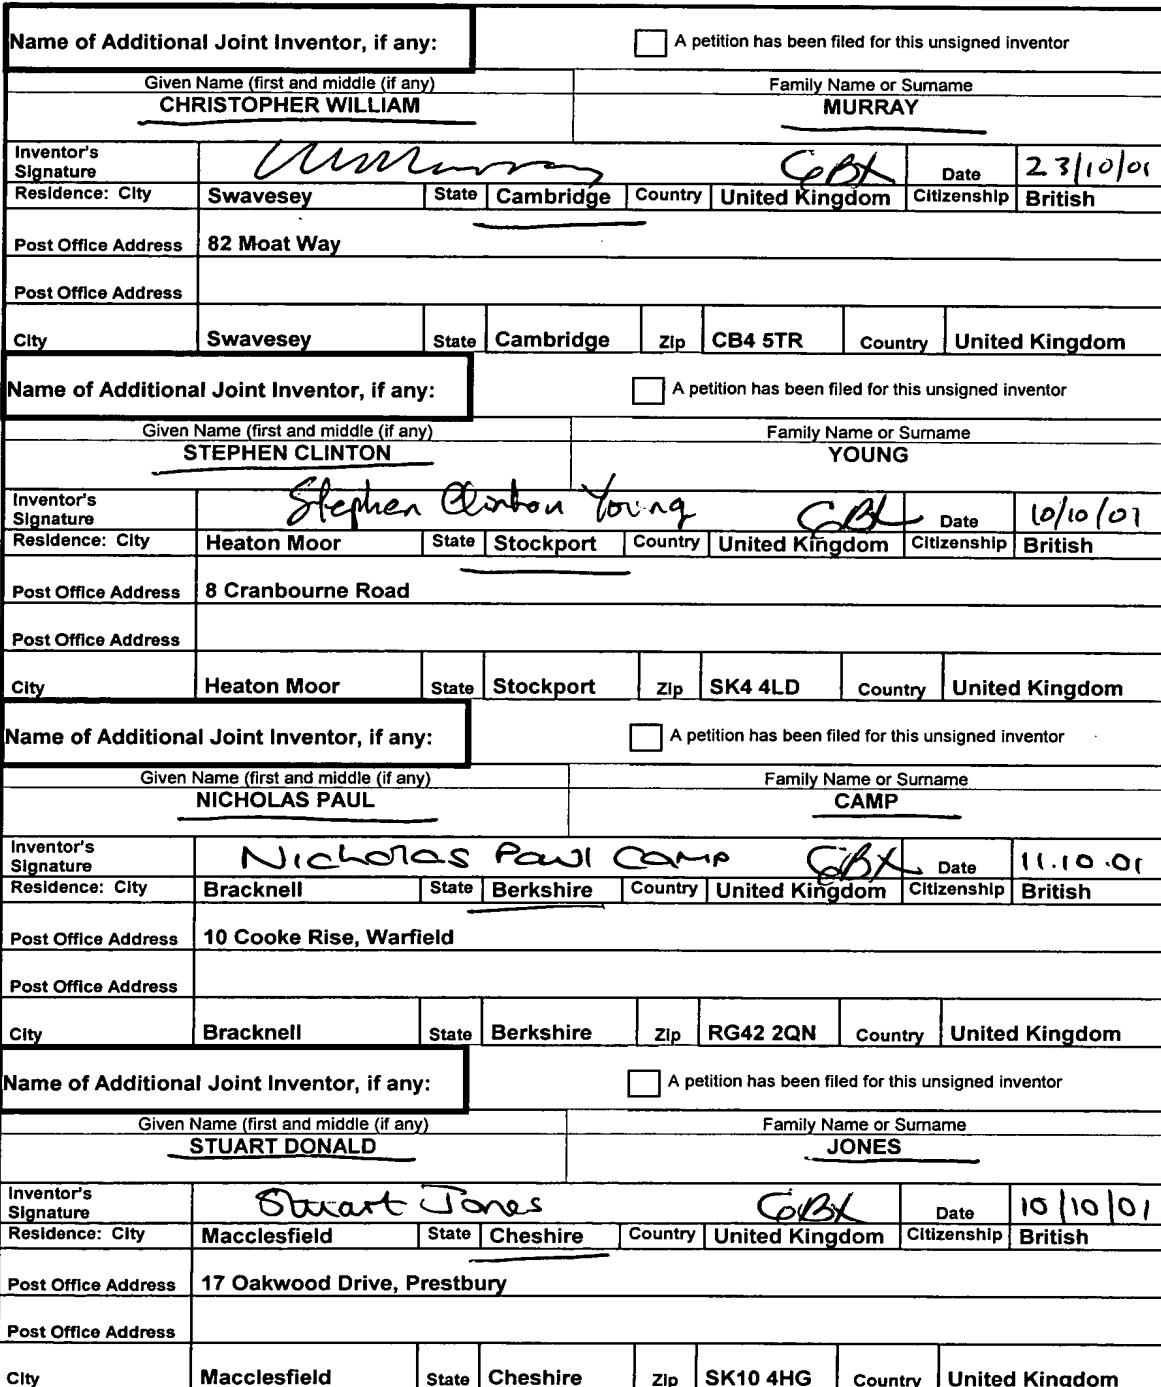 Name of Additional Joint Inventor, if any: A petition has been filed for this unsigned inventor
Given Name (first and middle (if any) Family Name or Surname
CHRISTOPHER WILLIAM MURRAY
Inventor's
Signature CWMurray GBX Date 23/10/01
Residence: City Swavesey State Cambridge Country United Kingdom Citizenship British
Post Office Address 82 Moat Way
Post Office Address
City Swavesey State Cambridge Zip CB4 5TR Country United Kingdom
Name of Additional Joint Inventor, if any: A petition has been filed for this unsigned inventor
Given Name (first and middle (if any) Family Name or Surname
STEPHEN CLINTON YOUNG
Inventor's
Signature Stephen Clinton Young GBX Date 10/10/01
Residence: City Heaton Moor State Stockport Country United Kingdom Citizenship British
Post Office Address 8 Cranbourne Road
Post Office Address
City Heaton Moor State Stockport Zip SK4 4LD Country United Kingdom
Name of Additional Joint Inventor, if any: A petition has been filed for this unsigned inventor
Given Name (first and middle (if any) Family Name or Surname
NICHOLAS PAUL CAMP
Inventor's
Signature Nicholas Paul Camp GBX Date 11.10.01
Residence: City Bracknell State Berkshire Country United Kingdom Citizenship British
Post Office Address 10 Cooke Rise, Warfield
Post Office Address
City Bracknell State Berkshire Zip RG42 2QN Country United Kingdom
Name of Additional Joint Inventor, if any: A petition has been filed for this unsigned inventor
Given Name (first and middle (if any) Family Name or Surname
STUART DONALD JONES
Inventor's
Signature Stuart Jones GBX Date 10/10/01
Residence: City Macclesfield State Cheshire Country United Kingdom Citizenship British
Post Office Address 17 Oakwood Drive, Prestbury
Post Office Address
City Macclesfield State Cheshire Zip SK10 4HG Country United Kingdom